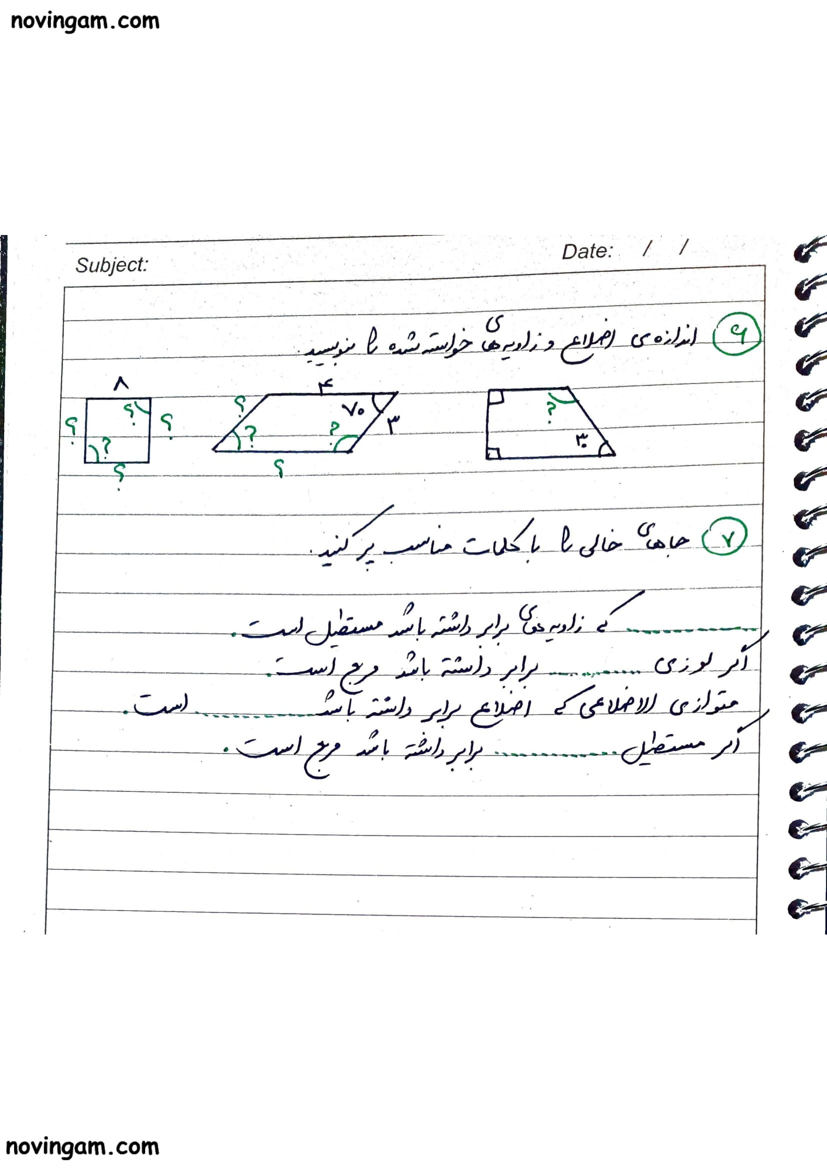 novingam.com
Subject:
Date: / /
۶ اندازه‌ی اضلاع و زاویه‌های خواسته شده را بنویسید.
۸ ؟ ؟ ؟ ؟ ?
۴ ؟ ۷۰ ۳ ? ? ؟
? ۳۰
۷ جاهای خالی را با کلمات مناسب پر کنید.
............ که زاویه‌های برابر داشته باشد مستطیل است.
اگر لوزی ............ برابر داشته باشد مربع است.
متوازی الاضلاعی که اضلاع برابر داشته باشد ............ است.
اگر مستطیل ............ برابر داشته باشد مربع است.
novingam.com